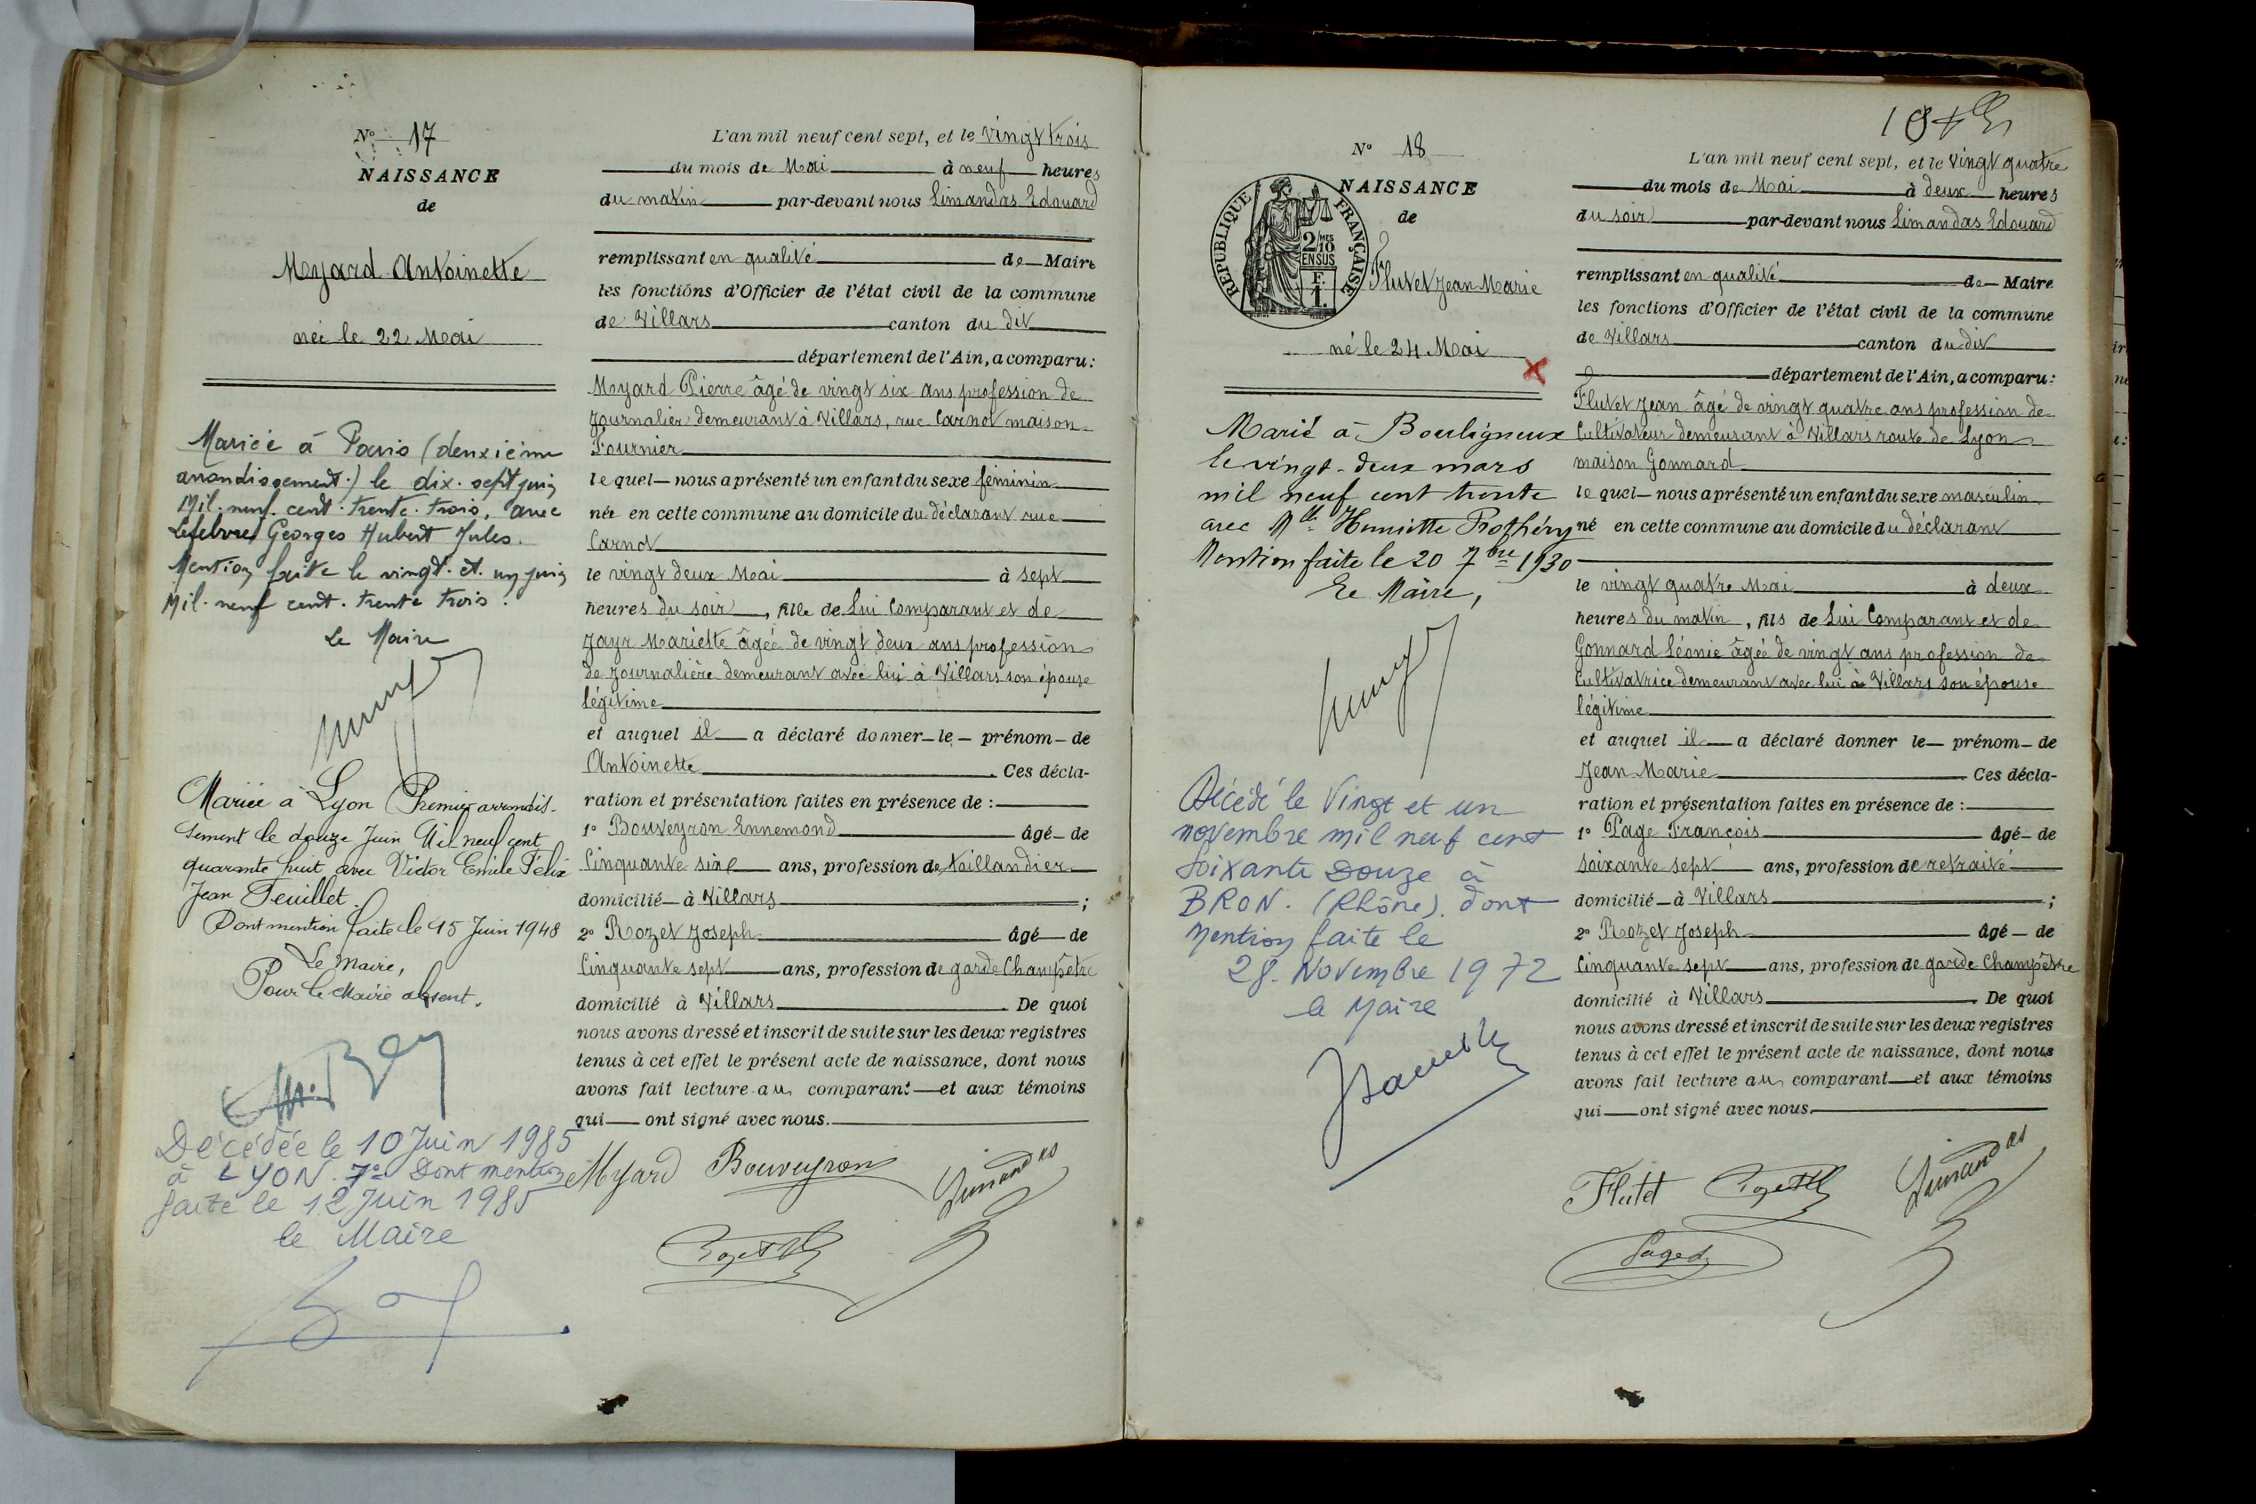 N° 17
NAISSANCE
de
Myard Antoinette
née le 22 Mai
Mariée à Paris (deuxième
arrondissement) le dix-sept juin
Mil. neuf. cent. trente. trois, avec
Lefebvre Georges Hubert Jules.
Mention faite le vingt. et. un juin
Mil. neuf cent. trente trois.
Le Maire
Mariée à Lyon Premier arrondis-
sement le douze Juin Mil neuf cent
quarante huit avec Victor Emile Félix
Jean Feuillet.
Dont mention faite le 15 Juin 1948
Le Maire,
Pour le Maire absent.
Décédée le 10 Juin 1985
à LYON 7e Dont mention
faite le 12 Juin 1985
le Maire
L'an mil neuf cent sept, et le vingt trois
du mois de Mai à neuf heures
du matin par-devant nous Limandas Edouard
remplissant en qualité de Maire
les fonctions d'Officier de l'état civil de la commune
de Villars canton du dit
département de l'Ain, a comparu:
Myard Pierre âgé de vingt six ans profession de
Journalier demeurant à Villars, rue Carnot maison
Fournier
le quel nous a présenté un enfant du sexe féminin
née en cette commune au domicile du déclarant rue
Carnot
le vingt deux Mai à sept
heures du soir, fille de Lui Comparant et de
Jayr Mariette âgée de vingt deux ans profession
de Journalière demeurant avec lui à Villars son épouse
légitime
et auquel il a déclaré donner le prénom de
Antoinette. Ces décla-
ration et présentation faites en présence de :
1° Bouveyron Ennemond âgé de
Cinquante six ans, profession de taillandier
domicilié à Villars ;
2° Rozet Joseph âgé de
Cinquante sept ans, profession de garde Champêtre
domicilié à Villars. De quoi
nous avons dressé et inscrit de suite sur les deux registres
tenus à cet effet le présent acte de naissance, dont nous
avons fait lecture au comparant et aux témoins
qui ont signé avec nous.
Myard Bouveyron Limandas
Rozet
N° 18
NAISSANCE
de
RÉPUBLIQUE FRANÇAISE
2/10 MES
EN SUS
F.
1.
Flutet Jean Marie
né le 24 Mai
Marié à Bouligneux
le vingt-deux mars
mil neuf cent trente
avec Mlle Henriette Prothéry
Mention faite le 20 7bre 1930
Le Maire,
Décédé le Vingt et un
novembre mil neuf cent
Soixante Douze à
BRON. (Rhône). dont
Mention faite le
28. Novembre 1972
le Maire
L'an mil neuf cent sept, et le vingt quatre
du mois de Mai à deux heures
du soir par-devant nous Limandas Edouard
remplissant en qualité de Maire
les fonctions d'Officier de l'état civil de la commune
de Villars canton du dit
département de l'Ain, a comparu:
Flutet Jean âgé de vingt quatre ans profession de
Cultivateur demeurant à Villars route de Lyon
maison Gonnard
le quel nous a présenté un enfant du sexe masculin
né en cette commune au domicile du déclarant
le vingt quatre Mai à deux
heures du matin, fils de Lui Comparant et de
Gonnard Léonie âgée de vingt ans profession de
Cultivatrice demeurant avec lui à Villars son épouse
légitime
et auquel il a déclaré donner le prénom de
Jean Marie. Ces décla-
ration et présentation faites en présence de :
1° Page François âgé de
soixante sept ans, profession de retraité
domicilié à Villars ;
2° Rozet Joseph âgé de
Cinquante sept ans, profession de garde Champêtre
domicilié à Villars. De quoi
nous avons dressé et inscrit de suite sur les deux registres
tenus à cet effet le présent acte de naissance, dont nous
avons fait lecture au comparant et aux témoins
qui ont signé avec nous.
Flutet Rozet Limandas
Page